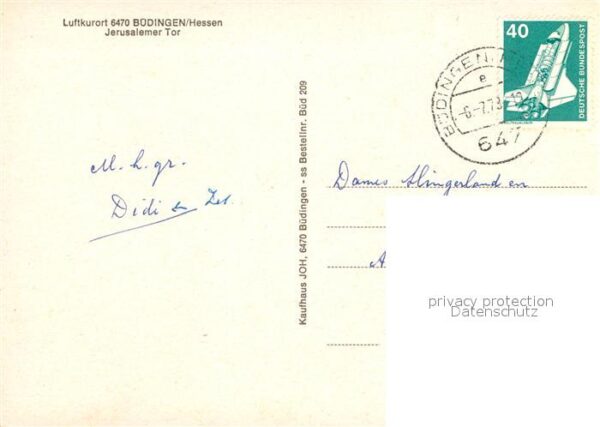 Luftkurort 6470 BÜDINGEN/Hessen
Jerusalemer Tor
40
DEUTSCHE BUNDESPOST
BÜDINGEN
e
-6.-7.78
647
M.h.gr.
Didi
Kaufhaus JOH, 6470 Büdingen - ss Bestellnr. Büd 209
Dames Slingerland en
A
privacy protection
Datenschutz